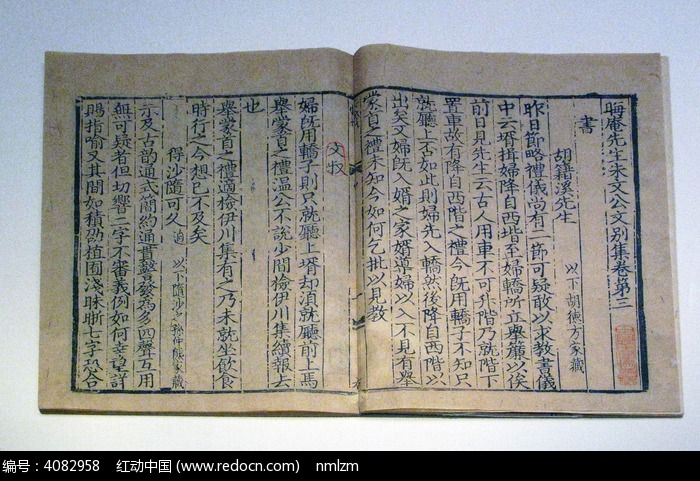 晦庵先生朱文公文別集卷第三
書
胡籍溪先生
以下胡德方家藏
昨日節略禮儀尚有一節可疑敢以求教書儀
中云壻揖婦降自西堦至婦轎所立舉簾以俟
前日見先生云古人用車不可升階乃就階下
置車故有降自西階之禮今既用轎子不知只
就廳上不如此則婦先入轎然後降自西階以
出矣又婦既入壻之家壻導婦以入不見有舉
蒙首之禮未知今如何乞批以見教
婦既用轎子則只就廳上壻却須就廳前上馬
舉蒙首之禮溫公不說少間檢伊川集續報去
也
舉蒙首之禮適檢伊川集有之乃未就坐飲食
時行之今想已不及矣
得沙隨可久
以下隨沙
家藏
示及古韵通式簡約通貫警發爲多四聲互用
無可疑者但切響二字不審義例如何幸望詳
賜指喻又其間如積劭植囿淺昧斷七字恐合
编号：4082958 红动中国(www.redocn.com) nmlzm